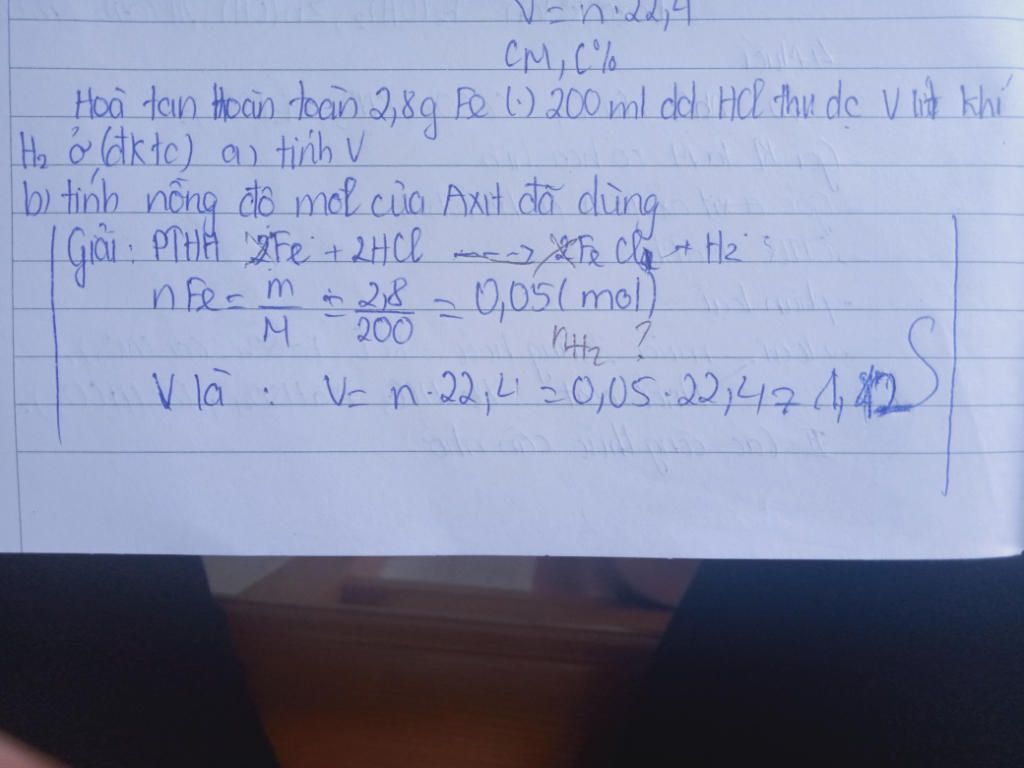 V = n . 22,4
CM, C%
Hoà tan Hoàn toàn 2,8g Fe (.) 200 ml dd HCl thu dc V lit khí
H₂ ở (đktc) a) tính V
b) tính nồng độ mol của Axit đã dùng
Giải: PTHH Fe + 2HCl ---> FeCl₂ + H₂
nFe = m/M = 2,8/200 = 0,05 (mol)
nH₂ ?
V là : V = n . 22,4 = 0,05 . 22,4 = 1,12